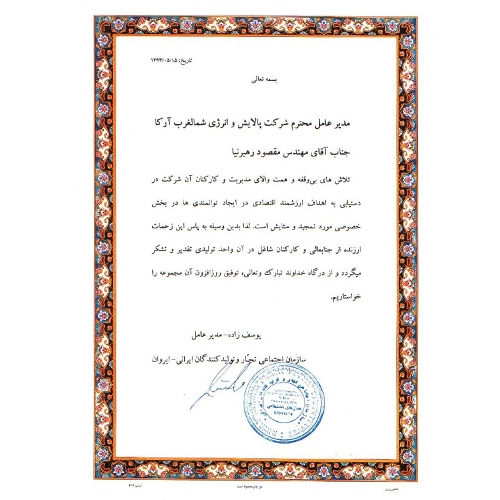 تاریخ: ۱۳۹۳/۰۵/۱۵
بسمه تعالی
مدیر عامل محترم شرکت پالایش و انرژی شمالغرب آرکا
جناب آقای مهندس مقصود رهبرنیا
تلاش های بی‌وقفه و همت والای مدیریت و کارکنان آن شرکت در
دستیابی به اهداف ارزشمند اقتصادی در ایجاد توانمندی ها در بخش
خصوصی مورد تمجید و ستایش است. لذا بدین وسیله به پاس این زحمات
ارزنده از جنابعالی و کارکنان شاغل در آن واحد تولیدی تقدیر و تشکر
میگردد و از درگاه خداوند تبارک وتعالی، توفیق روزافزون آن مجموعه را
خواستاریم.
یوسف زاده - مدیر عامل
سازمان اجتماعی تجّار و تولیدکنندگان ایرانی - ایروان